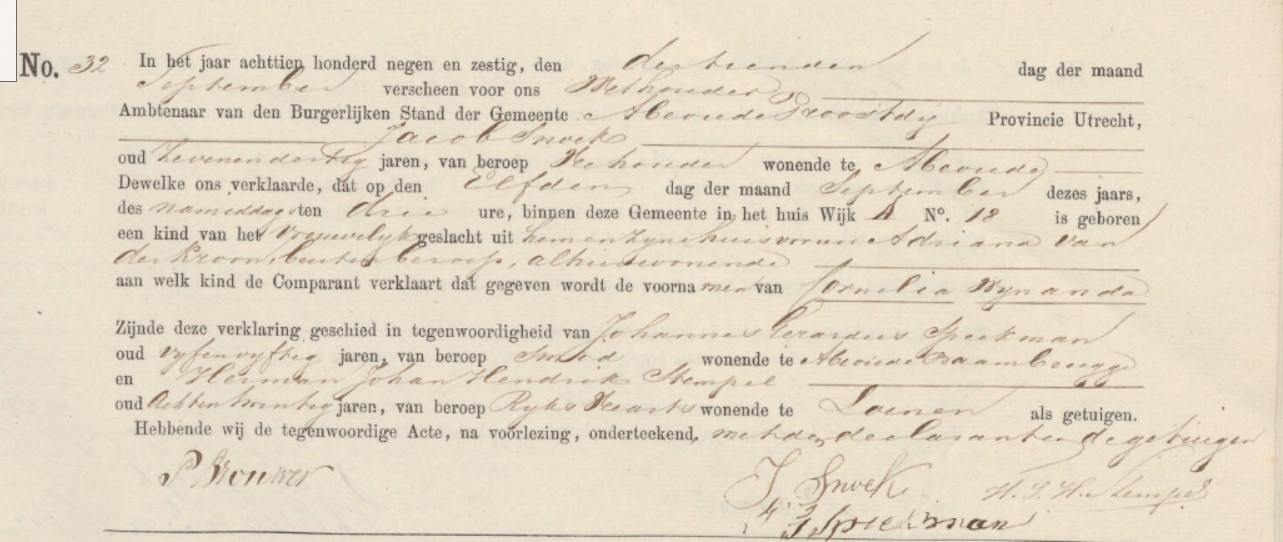 No. 32 In het jaar achttien honderd negen en zestig, den dertienden dag der maand
September verscheen voor ons Wethouder
Ambtenaar van den Burgerlijken Stand der Gemeente Abcoude Proostdy Provincie Utrecht,
Jacob Snoek
oud zevenendertig jaren, van beroep Veehouder wonende te Abcoude
Dewelke ons verklaarde, dat op den Elfden dag der maand September dezes jaars,
des namiddags ten drie ure, binnen deze Gemeente in het huis Wijk A No. 12 is geboren
een kind van het vrouwelyk geslacht uit hem en zyne huisvrouw Adriana van
der Kroon, buiten beroep, alhier wonende
aan welk kind de Comparant verklaart dat gegeven wordt de voornamen van Cornelia Wynanda
Zijnde deze verklaring geschied in tegenwoordigheid van Johannes Gerardus Speekman
oud vyfenvyftig jaren, van beroep Smid wonende te Abcoude Baambrugge
en Herman Johan Hendrik Stempel
oud Achtentwintig jaren, van beroep Ryks Veearts wonende te Loenen als getuigen.
Hebbende wij de tegenwoordige Acte, na voorlezing, onderteekend, met den declarant en de getuigen
P Brouwer J Snoek H. J. H. Stempel
J Speekman